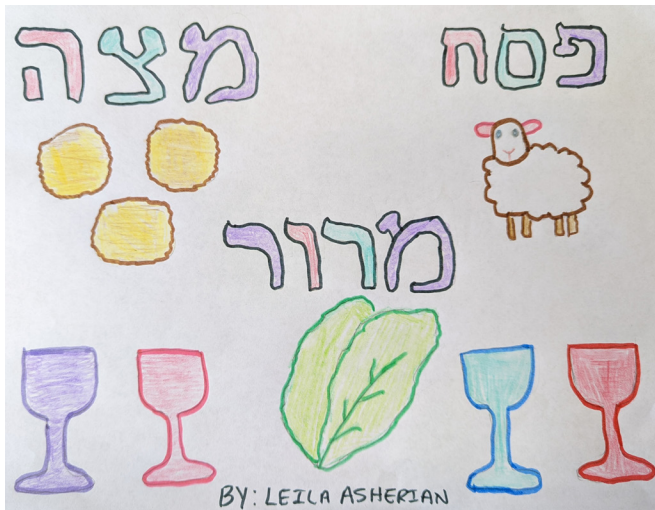 פסח
מצה
מרור
BY: LEILA ASHERIAN